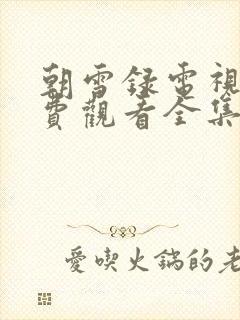 朝雪録電視
費觀看全集
愛喫火鍋的老